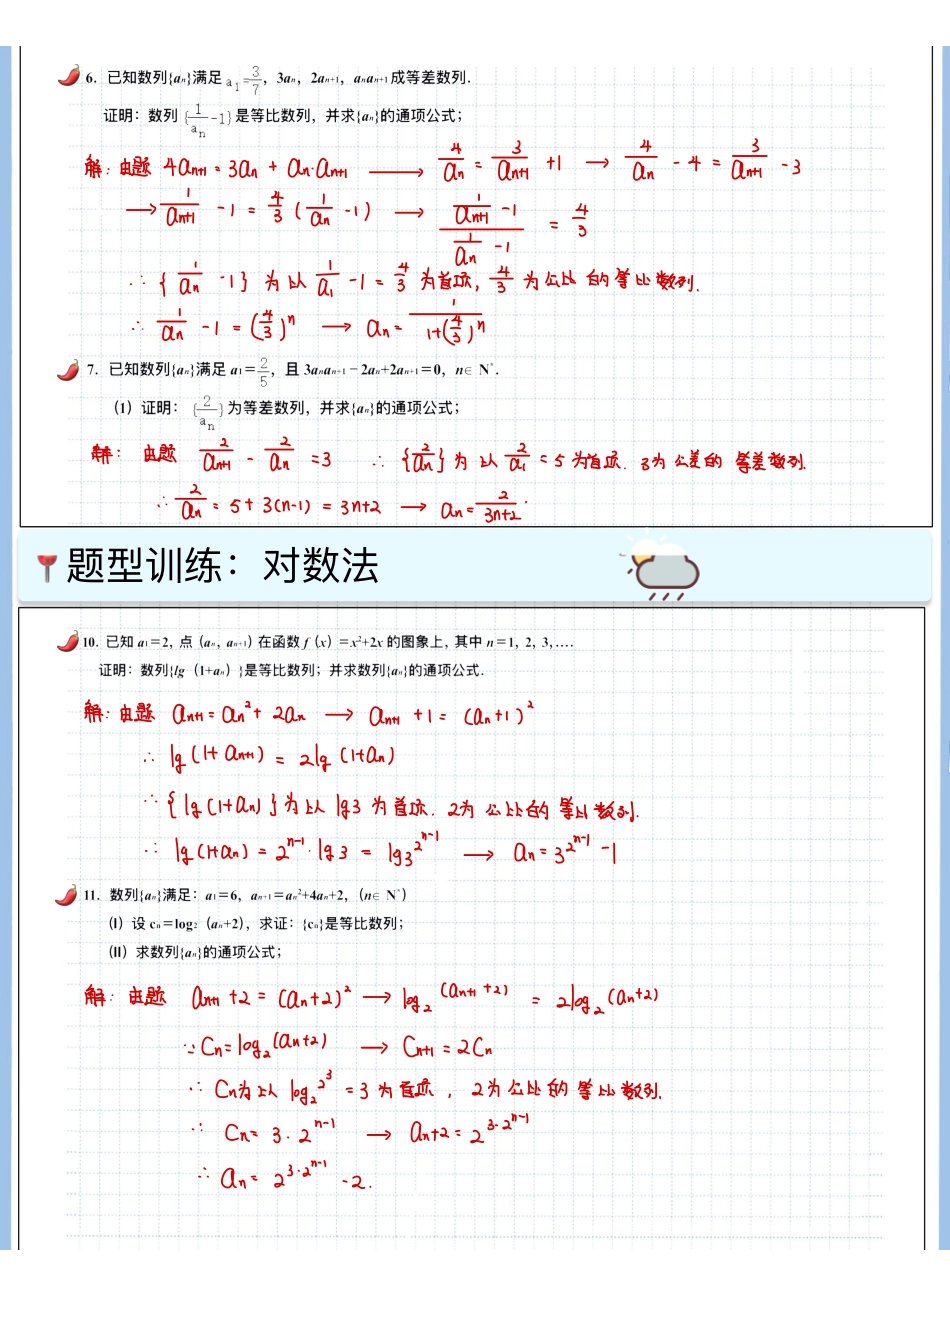 6. 已知数列{aₙ}满足 a₁=3/7，3aₙ，2aₙ₊₁，aₙaₙ₊₁ 成等差数列.
证明：数列 {1/aₙ-1} 是等比数列，并求{aₙ}的通项公式；
解：由题 4aₙ₊₁=3aₙ+aₙ·aₙ₊₁ ⟶ 4/aₙ=3/aₙ₊₁+1 → 4/aₙ-4=3/aₙ₊₁-3
→ 1/aₙ₊₁-1=4/3(1/aₙ-1) → (1/aₙ₊₁-1)/(1/aₙ-1)=4/3
∴{1/aₙ-1}为以1/a₁-1=4/3为首项，4/3为公比的等比数列.
∴1/aₙ-1=(4/3)ⁿ → aₙ=1/(1+(4/3)ⁿ)
7. 已知数列{aₙ}满足 a₁=2/5，且 3aₙaₙ₊₁-2aₙ+2aₙ₊₁=0，n∈N*.
（1）证明：{2/aₙ}为等差数列，并求{aₙ}的通项公式；
解：由题 2/aₙ₊₁-2/aₙ=3 ∴{2/aₙ}为以2/a₁=5为首项.3为公差的等差数列.
∴2/aₙ=5+3(n-1)=3n+2 → aₙ=2/(3n+2).
题型训练：对数法
10. 已知 a₁=2，点（aₙ，aₙ₊₁）在函数 f（x）=x²+2x 的图象上，其中 n=1，2，3，….
证明：数列{lg（1+aₙ）}是等比数列；并求数列{aₙ}的通项公式.
解：由题 aₙ₊₁=aₙ²+2aₙ → aₙ₊₁+1=(aₙ+1)²
∴lg(1+aₙ₊₁)=2lg(1+aₙ)
∴{lg(1+aₙ)}为以lg3为首项.2为公比的等比数列.
∴lg(1+aₙ)=2ⁿ⁻¹·lg3=lg3^(2ⁿ⁻¹) → aₙ=3^(2ⁿ⁻¹)-1
11. 数列{aₙ}满足：a₁=6，aₙ₊₁=aₙ²+4aₙ+2，（n∈N*）
（Ⅰ）设 cₙ=log₂（aₙ+2），求证：{cₙ}是等比数列；
（Ⅱ）求数列{aₙ}的通项公式；
解：由题 aₙ₊₁+2=(aₙ+2)² → log₂(aₙ₊₁+2)=2log₂(aₙ+2)
∵Cₙ=log₂(aₙ+2) → Cₙ₊₁=2Cₙ
∴Cₙ为以log₂2³=3为首项，2为公比的等比数列.
∴Cₙ=3·2ⁿ⁻¹ → aₙ+2=2^(3·2ⁿ⁻¹)
∴aₙ=2^(3·2ⁿ⁻¹)-2.